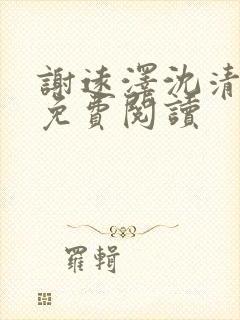 謝速澤沈清
免費閱讀
羅輯